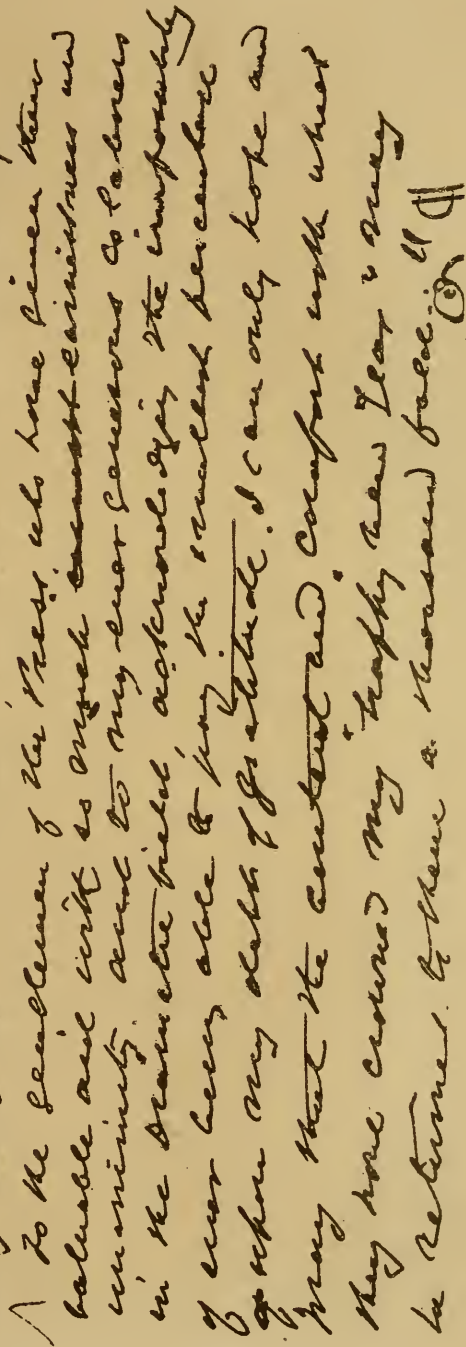 To the gentlemen of the Press, who have given their
valuable aid with so much earnestness and
unanimity. and to my ever generous co laborers
in the Dramatic field, acknowledging the impossibility
of ever being able to pay the smallest percentage
upon my debt of gratitude. I can only hope and
pray that the content and comfort with which
they have crowned my "happy new Year" may
be returned to them a thousand fold."